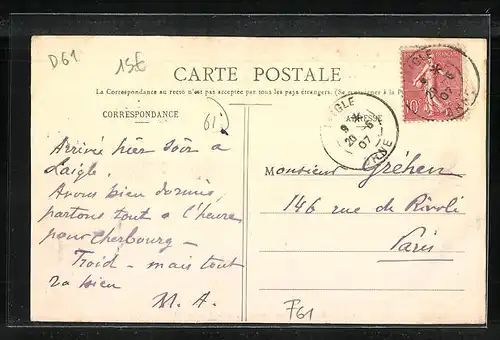 D61
15€
CARTE POSTALE
La Correspondance au recto n'est pas acceptée par tous les pays étrangers. (Se renseigner à la Poste
CORRESPONDANCE
61
ADRESSE
LAIGLE
8
20 -6
07
ORNE
10c
Arrivée hier soir à
Laigle.
Avons bien dormi,
partons tout à l'heure
pour Cherbourg -
Froid - mais tout
va bien
M. A.
Monsieur Gréhen
146 rue de Rivoli
Paris
F61